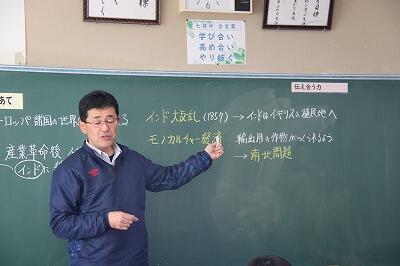 目標
七井中 合言葉
学び合い
高め合い
やり抜く
伝え合う力
あて
ーロッパ諸国の世界
る
産業革命後
インド
インド大反乱(1857) → インドはイギリスの植民地へ
モノカルチャー経済 輸出用の作物がつくられるよう
→ 南北問題